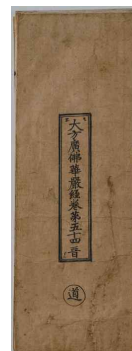 大方廣佛華嚴經卷第五十四 晉
道